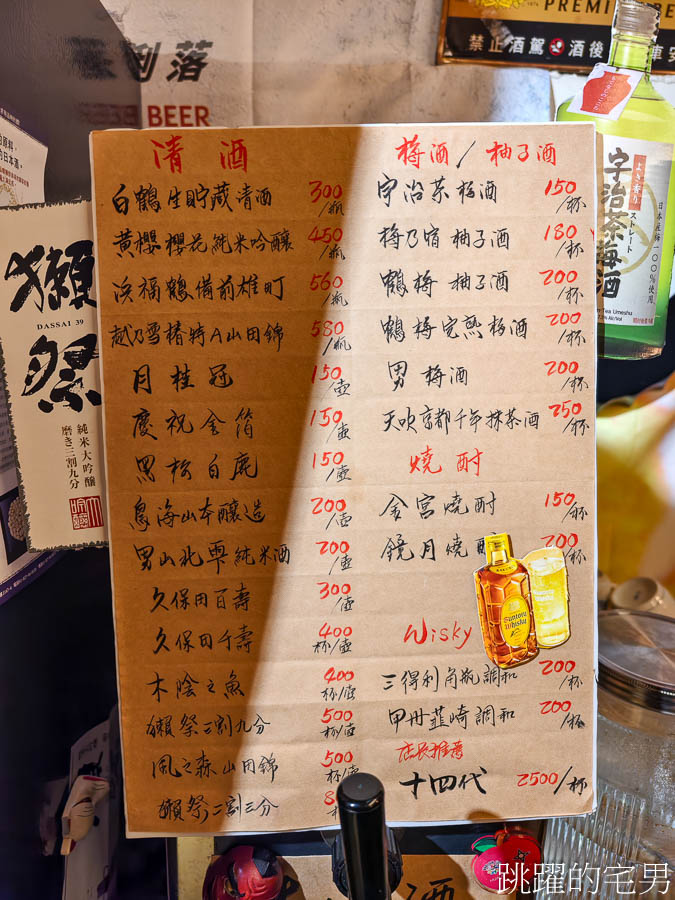 俐落
BEER
PREMI
禁止酒駕
酒後
車安
清酒
白鶴生貯蔵清酒 300/瓶
黃櫻櫻花純米吟釀 450/瓶
浜福鶴備前雄町 560/瓶
越乃雪椿特A山田錦 580/瓶
月桂冠 150/壺
慶祝金箔 150/壺
黑松白鹿 150/壺
鳥海山本釀造 200/壺
男山北雫純米酒 200/壺
久保田百壽 300/壺
久保田千壽 400杯/壺
木陰之魚 400杯/壺
獺祭三割九分 500杯/壺
風之森山田錦 500杯/壺
獺祭二割三分 8
梅酒/柚子酒
宇治茶梅酒 150/杯
梅乃宿柚子酒 180/杯
鶴梅柚子酒 200/杯
鶴梅完熟梅酒 200/杯
男梅酒 200/杯
天吹京都千年抹茶酒 250/杯
燒酎
金宮燒酎 150/杯
鏡月燒酎 200/杯
Wisky
三得利角瓶調和 200/杯
甲州韮崎調和 200/杯
店長推薦
十四代 2500/杯
SUNTORY
WHISKY
獺祭
DASSAI 39
純米大吟醸
磨き三割九分
の日本酒。
よき香り
ストレート
宇治茶梅酒
日本産梅100%使用
Tea Umeshu
酒
跳躍的宅男